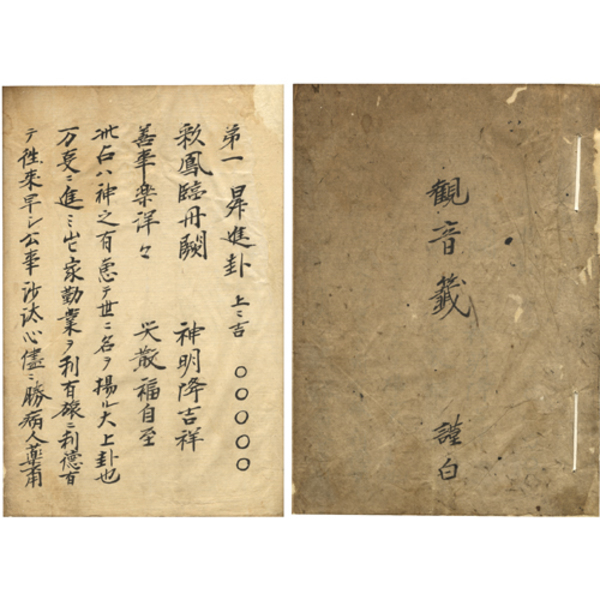 観音籤
謹白
第一 昇進卦 上々吉 ○○○○○
彩鳳臨丹闕 神明降吉祥
善事楽洋々 災散福自至
此占ハ神之有恵テ世ニ名ヲ揚ル大上卦也
万 ニ進ミ出家勤業ヲ利有旅ニ利徳有
テ往来早シ公事沙汰心儘ニ勝病人薬用